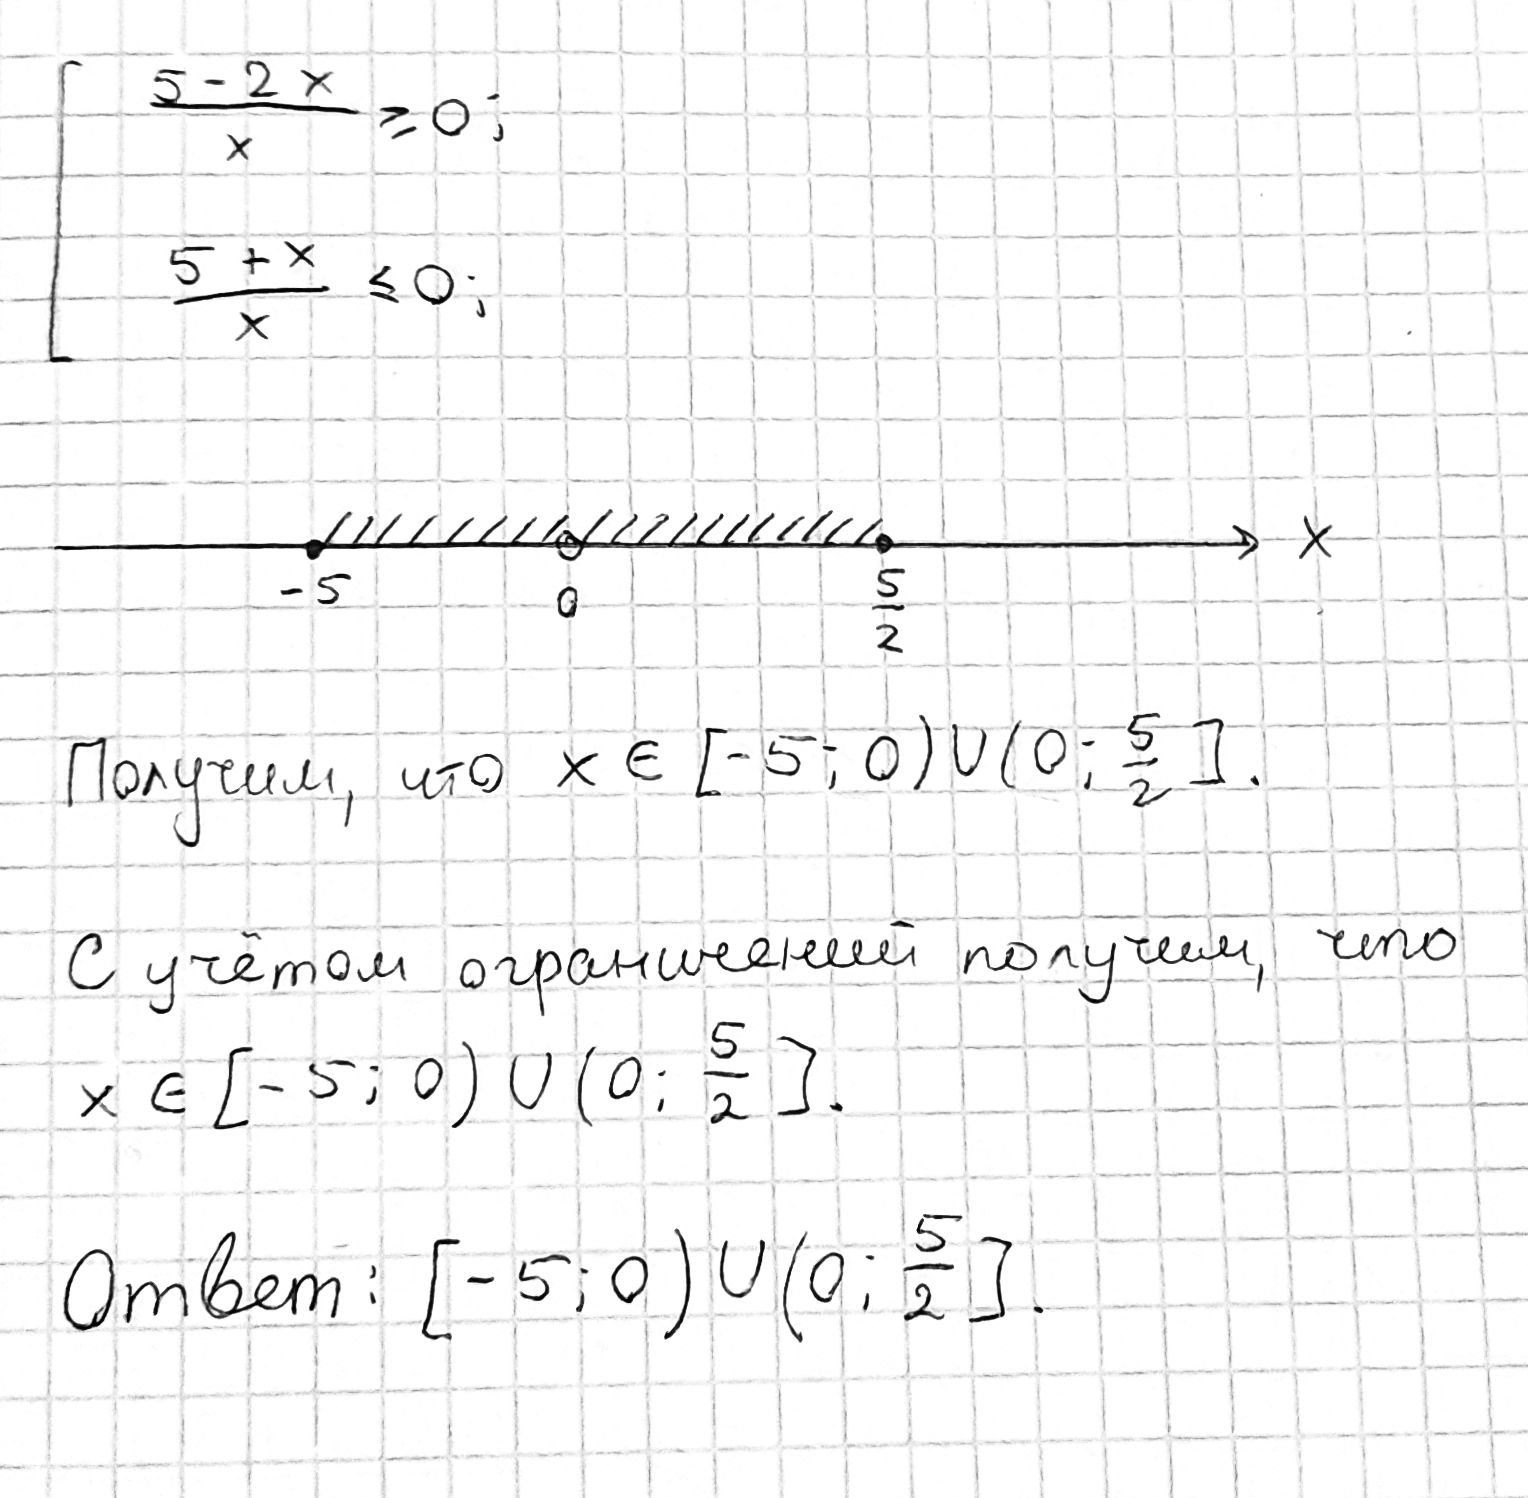 [ (5 - 2x)/x ⩾ 0;
(5 + x)/x ⩽ 0;
x
-5 0 5/2
Получим, что x ∈ [-5; 0) ∪ (0; 5/2].
С учётом ограничений получим, что
x ∈ [-5; 0) ∪ (0; 5/2].
Ответ: [-5; 0) ∪ (0; 5/2].